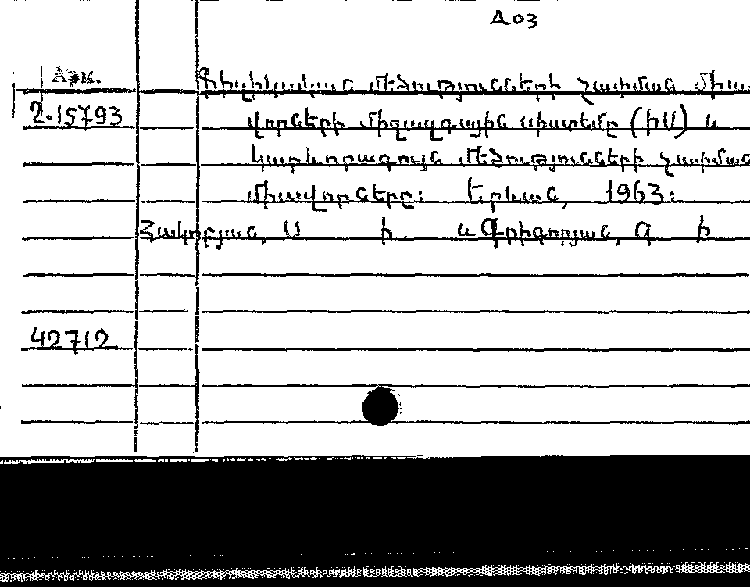 Д03
Ֆիզիկական մեծությունների չափման միա
2-15793
վորների միջազգային սիստեմը (ԻՍ) և
կարևորագույն մեծությունների չափման
միավորները: Երևան, 1963:
Հակոբյան, Ս Ի և Գրիգորյան, Գ Ի
42712